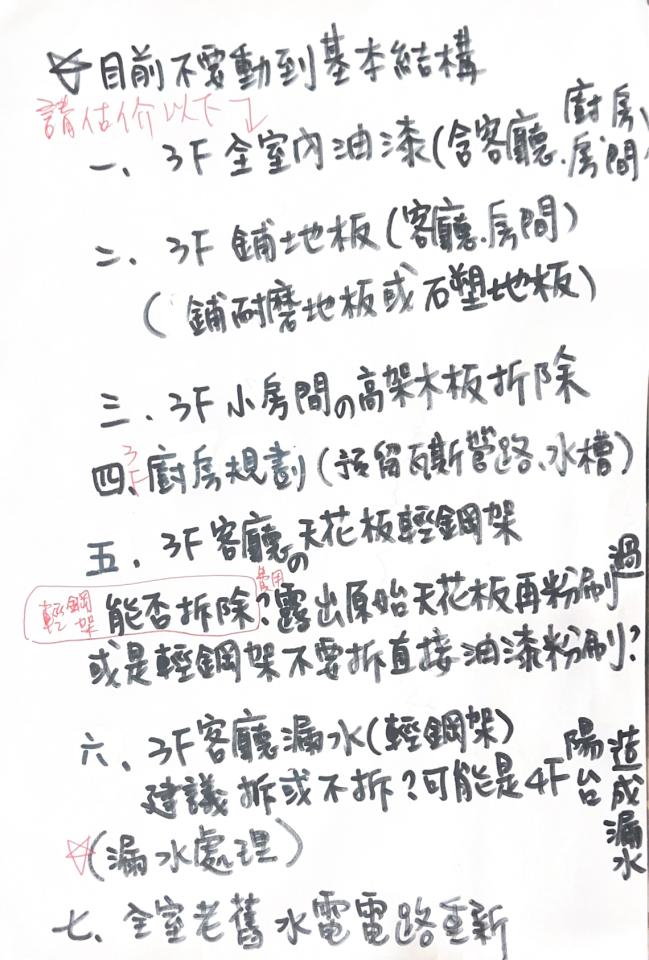 ☆目前不要動到基本結構
請估价以下
一、3F全室內油漆(含客廳、廚房、房間
二、3F 鋪地板(客廳、房間)
(鋪耐磨地板或石塑地板)
三、3F小房間の高架木板拆除
四、3F廚房規劃(預留瓦斯管路、水槽)
五、3F客廳の天花板輕鋼架
輕鋼架 能否拆除?費用 露出原始天花板再粉刷過
或是輕鋼架不要拆直接油漆粉刷?
六、3F客廳漏水(輕鋼架)
建議拆或不拆?可能是4F陽台造成漏水
☆(漏水處理)
七、全室老舊水電電路重新